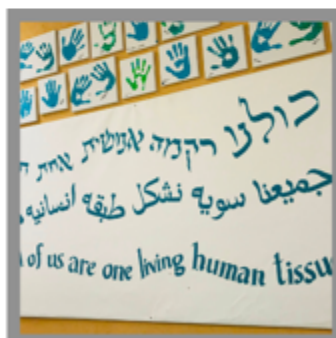 כולנו רקמה אנושית אחת
جميعنا سويه نشكل طبقه انسانيه
of us are one living human tissu